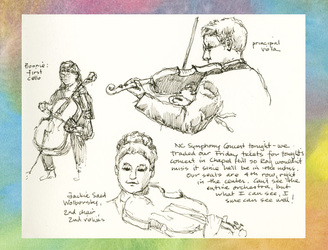 Bonnie:
first
cello
principal
viola
NC Symphony Concert tonight - we
traded our Friday tickets for tonight's
concert in Chapel Hill so Ray wouldn't
miss it since he'll be in
Our seats are 4th row, right
in the center. Can't see the
entire orchestra, but
what I can see, I
sure can see well!
Jackie Saed
Wolborsky,
2nd chair,
2nd violins